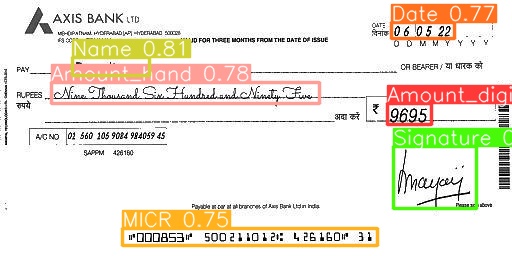 AXIS BANK LTD
MEHDIPATNAM, HYDERABAD [AP] HYDERABAD 500028
VALID FOR THREE MONTHS FROM THE DATE OF ISSUE
DATE
दिनांक 06 05 22
Date 0.77
Name 0.81
PAY
OR BEARER / या धारक को
Amount_hand 0.78
RUPEES Nine Thousand Six Hundred and Ninety Five
रुपये
अदा करें
Amount_digi
₹ 9695
A/C NO 02 560 105 9084 984059 45
SAPPM 426160
Signature 0
Payable at par at all branches of Axis Bank Ltd in India.
Please above
MICR 0.75
⑈000853⑈ 500211012⑆ 426160⑈ 31